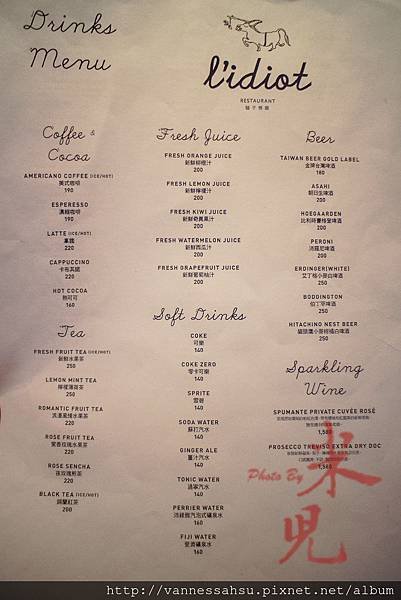 Drinks
Menu
l'idiot
RESTAURANT
驢子餐廳
Coffee &
Cocoa
AMERICANO COFFEE (ICE/HOT)
美式咖啡
190
ESPERESSO
濃縮咖啡
190
LATTE (ICE/HOT)
拿鐵
220
CAPPUCCINO
卡布其諾
220
HOT COCOA
熱可可
160
Tea
FRESH FRUIT TEA (ICE/HOT)
新鮮水果茶
250
LEMON MINT TEA
檸檬薄荷茶
250
ROMANTIC FRUIT TEA
浪漫風情水果茶
220
ROSE FRUIT TEA
驚香玫瑰水果茶
220
ROSE SENCHA
夜玫瑰煎茶
220
BLACK TEA (ICE/HOT)
錫蘭紅茶
200
Fresh Juice
FRESH ORANGE JUICE
新鮮柳橙汁
200
FRESH LEMON JUICE
新鮮檸檬汁
200
FRESH KIWI JUICE
新鮮奇異果汁
200
FRESH WATERMELON JUICE
新鮮西瓜汁
200
FRESH GRAPEFRUIT JUICE
新鮮葡萄柚汁
200
Soft Drinks
COKE
可樂
140
COKE ZERO
零卡可樂
140
SPRITE
雪碧
140
SODA WATER
蘇打汽水
140
GINGER ALE
薑汁汽水
140
TONIC WATER
通寧汽水
140
PERRIER WATER
沛綠雅汽泡式礦泉水
160
FIJI WATER
斐濟礦泉水
160
Beer
TAIWAN BEER GOLD LABEL
金牌台灣啤酒
180
ASAHI
朝日生啤酒
200
HOEGAARDEN
比利時豪格登啤酒
200
PERONI
沛羅尼啤酒
200
ERDINGER(WHITE)
艾丁格小麥白啤酒
250
BODDINGTON
伯丁罕啤酒
250
HITACHING NEST BEER
貓頭鷹小麥柑橘白啤酒
250
Sparkling
Wine
SPUMANTE PRIVATE CUVÉE ROSÉ
1,580
PROSECCO TREVISO EXTRA DRY DOC
1,580
Photo By
米兒
http://vannessahsu.pixnet.net/album